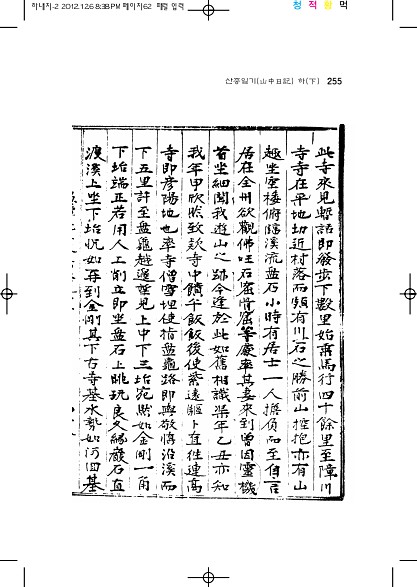 하내지-2 2012.12.6 8:38 PM 페이지62 매월 입력
청 적 황 먹
산중일기(山中日記) 하(下) 255
此寺來見暫話即發步下數里始肅馬行四十餘里至障川
寺寺在平地切近村落而頗有川石之勝前山控抱亦有山
趣坐雲樓俯臨溪流盤石小時有居士一人携負而至自言
居在全州欲觀佛呈石窟骨窟等處率其妻來到曾因靈機
首坐細聞我遊山之跡今逢於此如舊相識渠年乙丑亦知
我年甲欣然致款寺中饋午飯飯後使紫遠軀卜直往連高
寺即彦陽地也率寺僧雪埋使指盤龜路即與敬悔沿溪而
下五里許至盤龜越邊望見上中下三坮宛然如金剛一角
下坮端正若用人工削立即坐盤石上眺玩良久緣巖石直
渡溪上坐下坮怳如再到金剛其下右寺基水勢如河回基